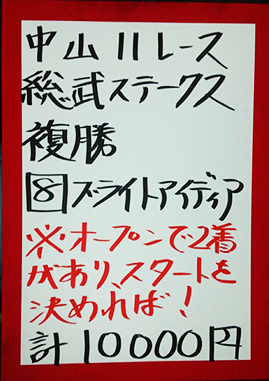 中山11レース
総武ステークス
複勝
⑧ブライトアイディア
※オープンで2着
があり、スタートを
決めれば!
計10000円